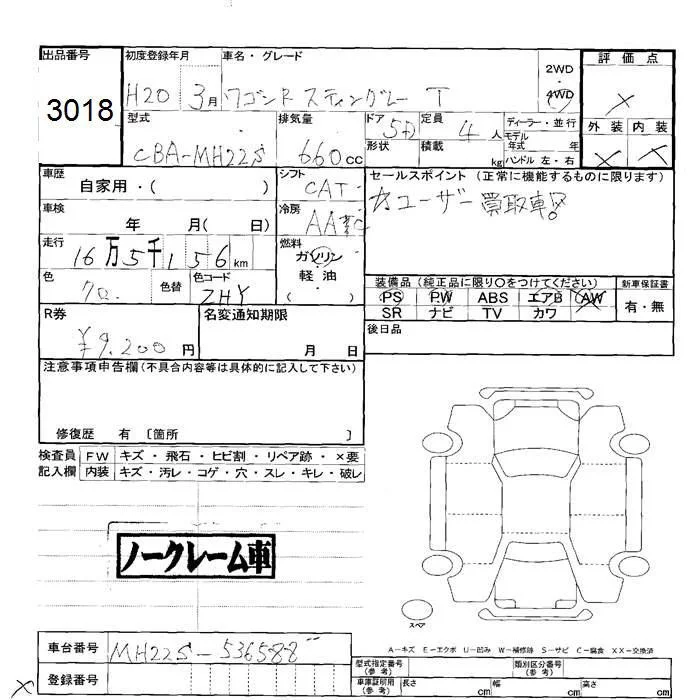 出品番号
3018
初度登録年月
H20 3月
車名・グレード
ワゴンR スティングレー T
2WD
・
4WD
評価点
×
外装 内装
× ×
型式
CBA-MH22S
排気量
660cc
ドア 5D
形状
定員 4人
積載 kg
ディーラー・並行
モデル
年式 年
ハンドル 左・右
車歴
自家用・( )
シフト
CAT
セールスポイント (正常に機能するものに限ります)
☆ユーザー買取車!
車検
年 月( 日)
冷房
AAC
走行
16万5千156km
燃料
ガソリン
軽油
( )
色
クロ
色替
色コード
ZHY
装備品(純正品に限り○をつけてください)
PS PW ABS エアB AW
SR ナビ TV カワ
新車保証書
有・無
R券
¥9,200円
名変通知期限
月 日
後日品
注意事項申告欄(不具合内容等は具体的に記入して下さい)
修復歴 有 〔箇所 〕
検査員
記入欄
FW キズ・飛石・ヒビ割・リペア跡・×要
内装 キズ・汚レ・コゲ・穴・スレ・キレ・破レ
ノークレーム車
スペア
A-キズ E-エクボ U-凹み W-補修跡 S-サビ C-腐食 XX-交換済
車台番号
MH22S-536588
登録番号
型式指定番号
(参考)
類別区分番号
(参考)
車庫証明用
(参考)
長さ cm 幅 cm 高さ cm
×